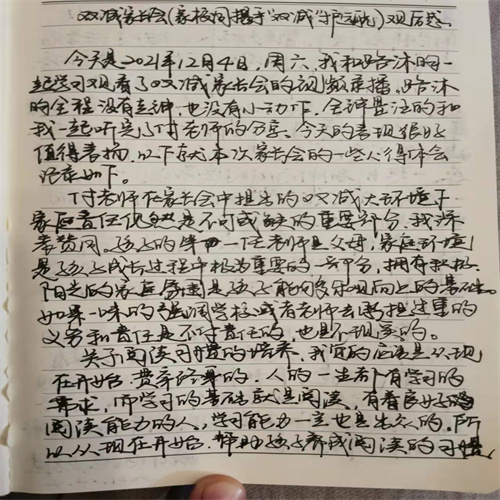 双减家长会(家校同携手"双减"护远航)观后感.
今天是2021年12月4日,周六,我和晗沐的一
起学习观看了双减家长会的视频录播,晗沐
的全程没有走神,也没有小动作,全神贯注的和
我一起听完了付老师的分享,今天的表现很好
值得表扬,以下就本次家长会的一些心得体会
记录如下。
付老师在家长会中提出的双减大环境下
家庭责任仍然是不可或缺的重要部分,我非
常赞同。孩子的第一任老师是父母,家庭环境
是孩子成长过程中极为重要的一部分,拥有积极
阳光的家庭氛围是孩子能够乐观向上的基础。
如果一味的强调学校或者老师去承担过重的
义务和责任是不负责任的,也是不现实的。
关于阅读习惯的培养,我觉的应该是从现
在开始,贯穿终身的,人的一生都有学习的
需求,而学习的基础就是阅读,有着良好的
阅读能力的人,学习能力一定也是出众的,所
以从现在开始,帮助孩子养成阅读的习惯,